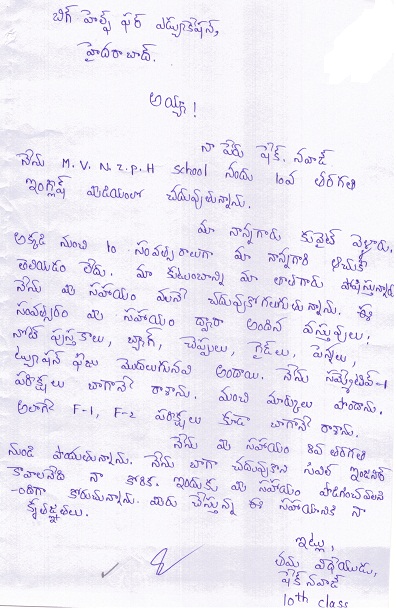 బిగ్ హెల్ప్ ఫర్ ఎడ్యుకేషన్,
హైదరాబాద్.
అయ్యా!
నా పేరు షేక్. నవాజ్
నేను M.V.N.Z.P.H school నందు 10వ తరగతి
ఇంగ్లీష్ మీడియంలో చదువుతున్నాను.
మా నాన్నగారు కువైట్ వెళ్ళారు,
అక్కడి నుంచి 10 సంవత్సరాలుగా మా నాన్నగారి ఆచుకీ
తెలియడం లేదు. మా కుటుంబాన్ని మా తాతగారు పోషిస్తున్నారు
నేను మీ సహాయం వలనే చదువుకోగలుగుతున్నాను. ఈ
సంవత్సరం మీ సహాయం ద్వారా అందిన వస్తువులు,
నోట్ పుస్తకాలు, బ్యాగ్, చెప్పులు, గైడ్‌లు, పెన్నులు,
ట్యూషన్ ఫీజు మొదలుగునవి అందాయి. నేను సమ్మేటివ్-1
పరీక్షలు బాగానే రాశాను. మంచి మార్కులు పొందాను.
అలాగే F-1, F-2 పరీక్షలు కూడా బాగానే రాశాను.
నేను మీ సహాయం 8వ తరగతి
నుండి పొందుతున్నాను. నేను బాగా చదువుకొని సివిల్ ఇంజనీర్
కావాలనేది నా కోరిక. ఇందుకు మీ సహాయం పొడిగించవలసి
-ందిగా కోరుచున్నాను. మీరు చేస్తున్న ఈ సహాయానికి నా
కృతజ్ఞతలు.
ఇట్లు,
తమ విధేయుడు,
షేక్ నవాజ్
10th class